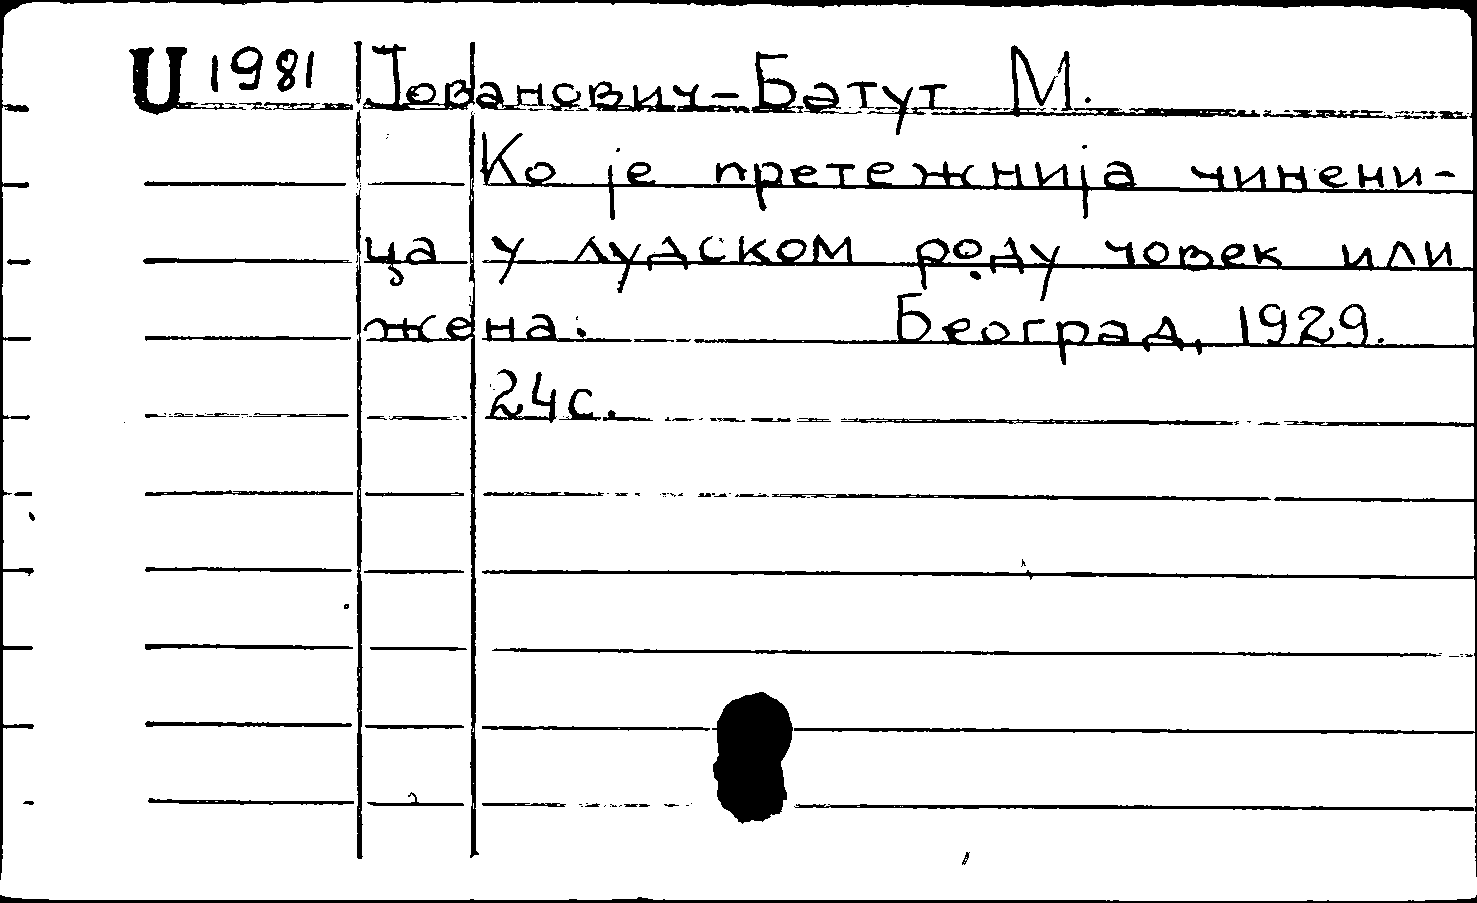 U 1981 Јовановић-Батут М.
Ко је претежнија чинени-
ца у лудском роду човек или
жена. Београд, 1929.
24с.